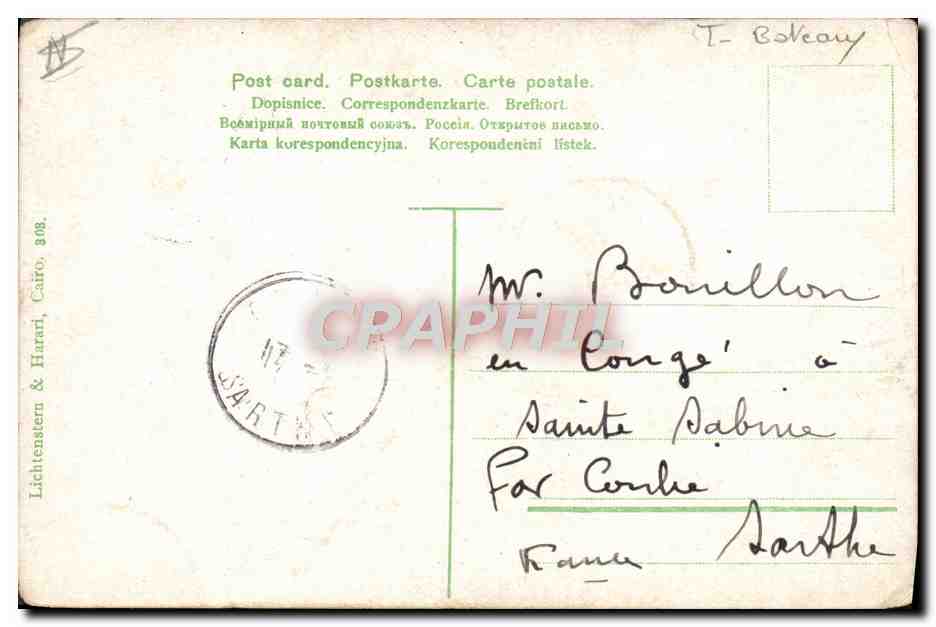 Post card. Postkarte. Carte postale.
Dopisnice. Correspondenzkarte. Brefkort.
Всемірный почтовый союзъ. Россія. Открытое письмо.
Karta korespondencyjna. Korespondenční lístek.
Lichtenstern & Harari, Cairo. 303.
SARTHE
CPAPHIL
M. Bouillon
en Congé à
Sainte Sabine
Par Conlie
Sarthe
France